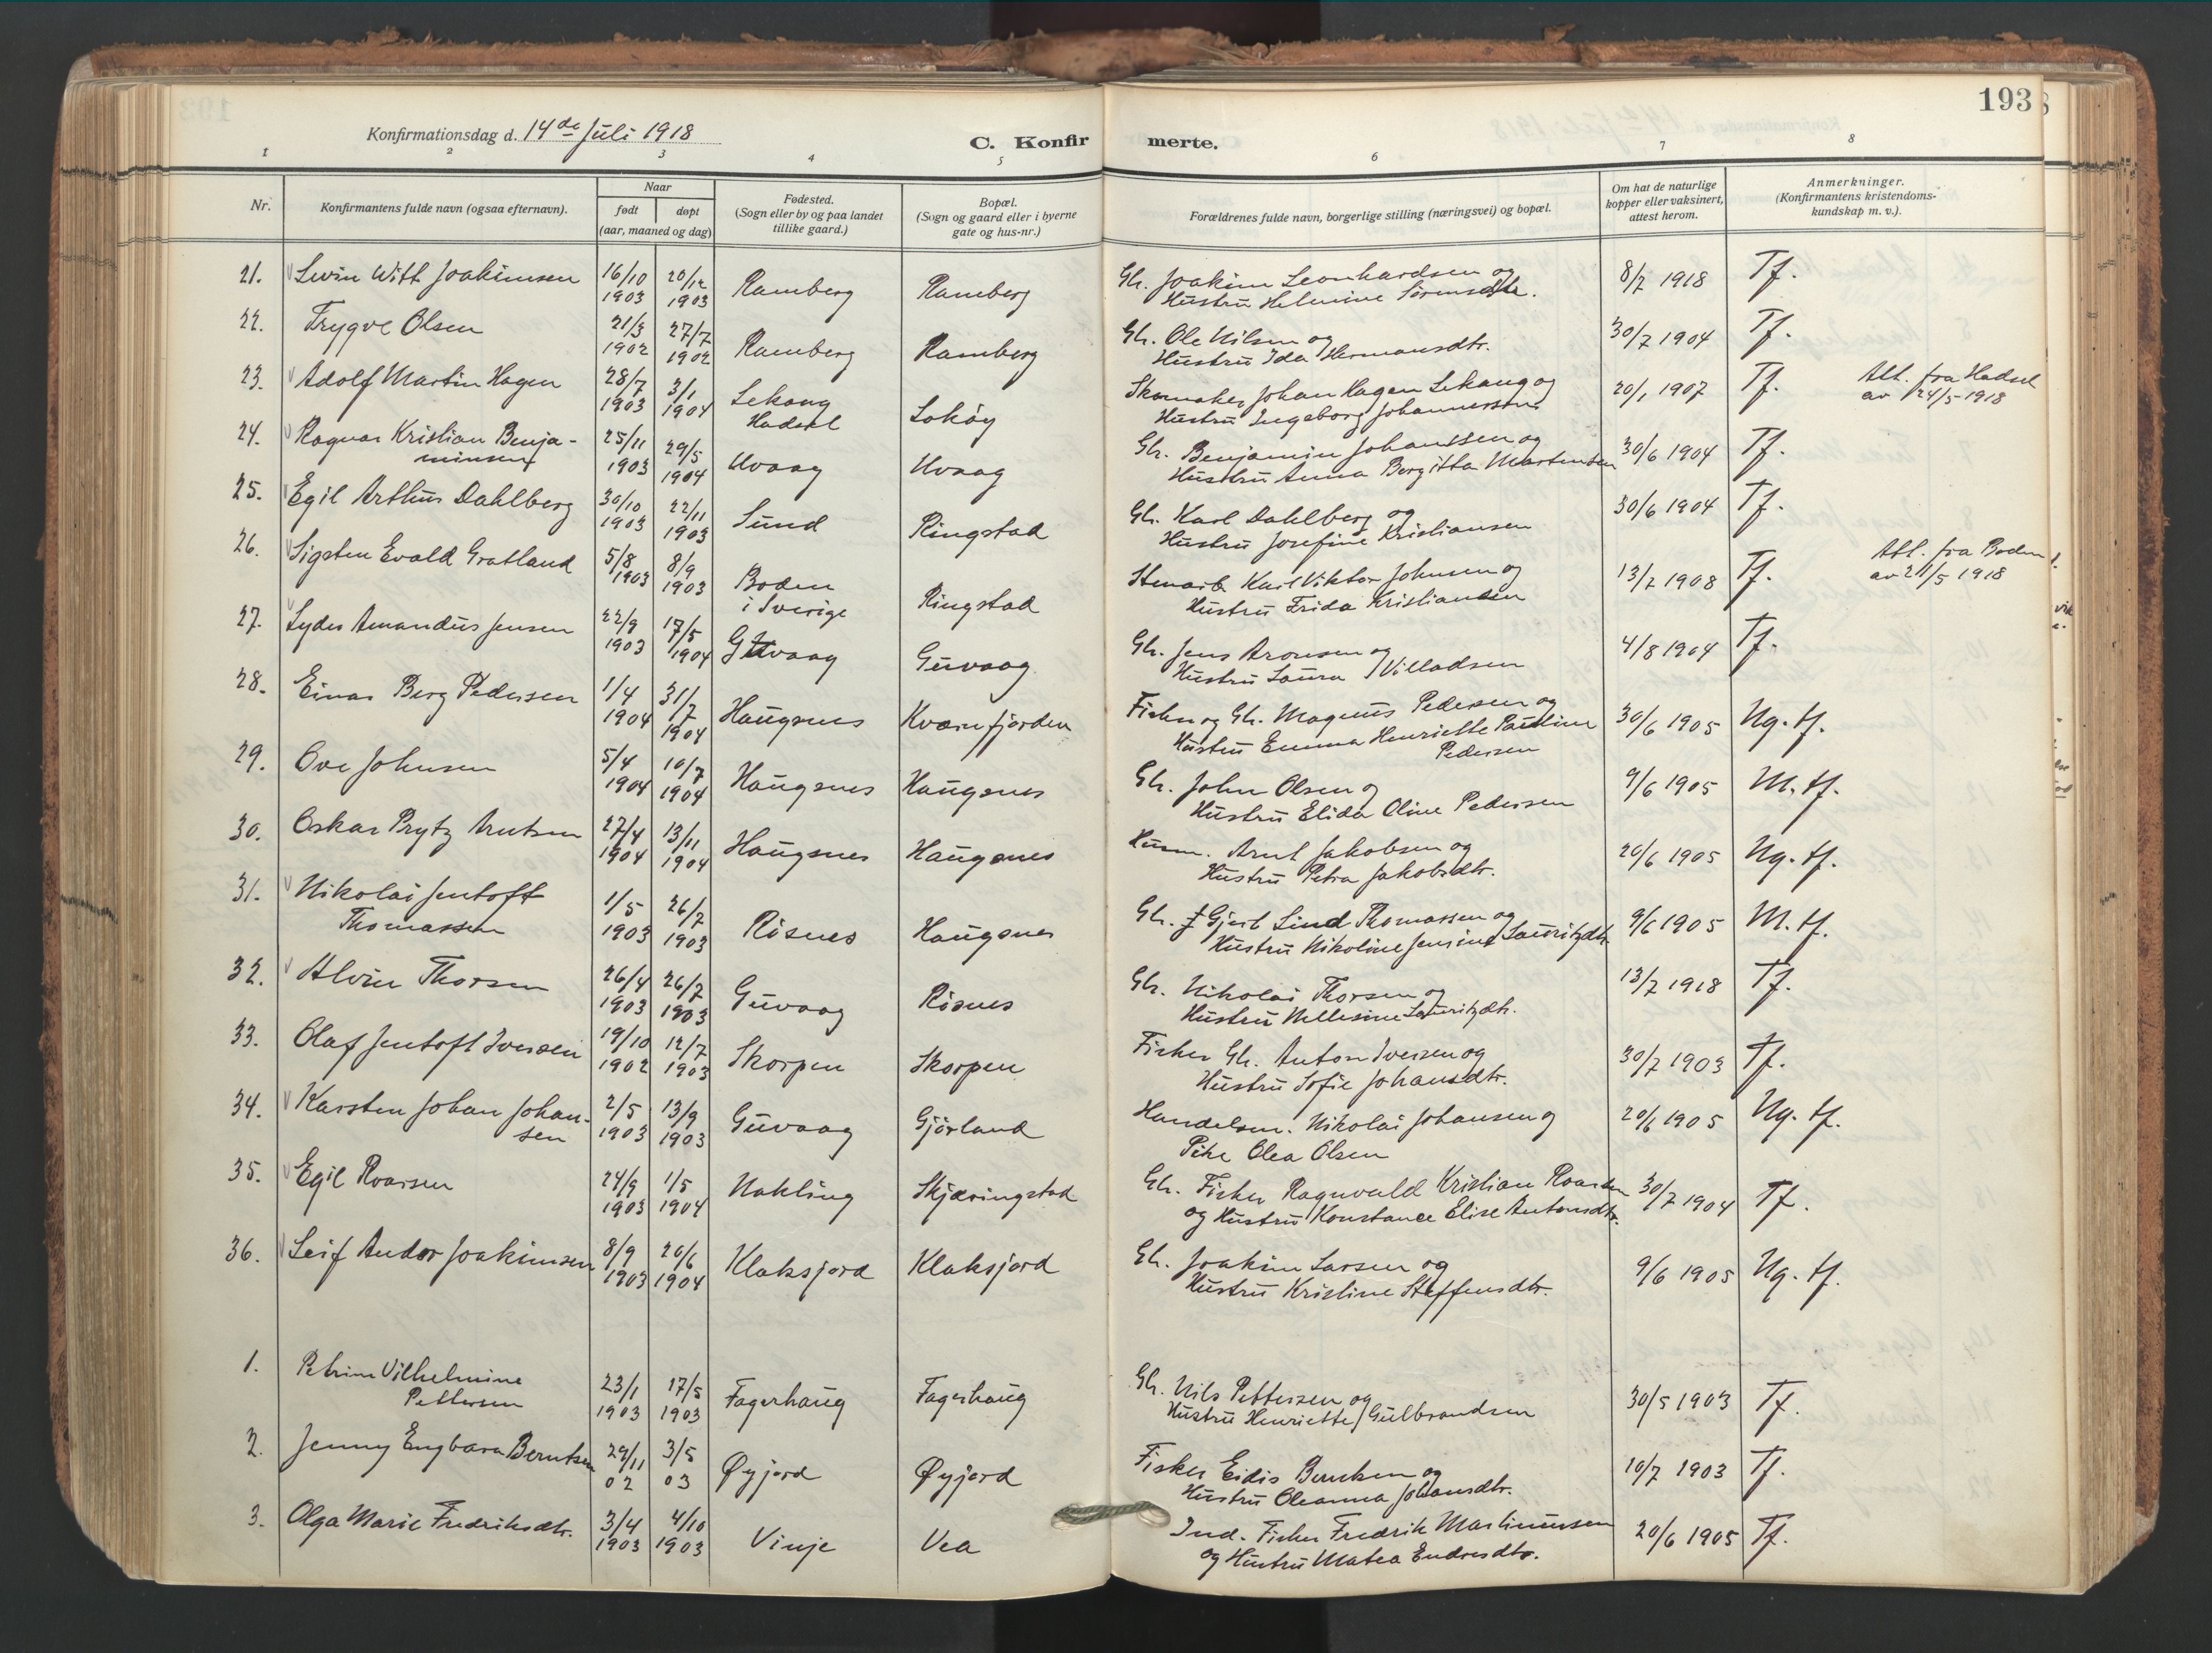 193
Konfirmationsdag d. 14de Juli 1918
C. Konfirmerte.
1 2 3 4 5 6 7 8
Nr.
Konfirmantens fulde navn (ogsaa efternavn).
Naar
født døpt
(aar, maaned og dag)
Fødested.
(Sogn eller by og paa landet
tillike gaard.)
Bopæl.
(Sogn og gaard eller i byerne
gate og hus-nr.)
Forældrenes fulde navn, borgerlige stilling (næringsvei) og bopæl.
Om hat de naturlige
kopper eller vaksinert,
attest herom.
Anmerkninger.
(Konfirmantens kristendoms-
kundskap m. v.).
21. Svein Witt Joakimsen 16/10 1903 20/12 1903 Ramberg Ramberg Gb. Joakim Leonhardsen og 8/7 1918 Tf.
Hustru Helmine Sørensdtr.
22. Trygve Olsen 21/3 1902 27/7 1902 Ramberg Ramberg Gb. Ole Nilsen og 30/7 1904 Tf.
Hustru Ida Hermansdtr.
23. Adolf Martin Hagen 28/7 1903 3/1 1904 Lekang Hadsel Lokøy Skomaker Johan Hagen Lekang og 20/1 1907 Tf. Att. fra Hadsel
Hustru Ingeborg Johannessen av 24/5-1918
24. Ragnar Kristian Benja- 25/11 1903 29/5 1904 Uvaag Uvaag Gb. Benjamin Johanssen og 30/6 1904 Tf.
minsen Hustru Anna Bergitta Martensen
25. Egil Arthur Dahlberg 30/10 1903 22/11 1903 Sund Ringstad Gb. Karl Dahlberg og 30/6 1904 Tf.
Hustru Josefine Kristiansen
26. Sigsten Evald Gratland 5/8 1903 8/9 1903 Boden i Sverige Ringstad Stenarb. Karl Viktor Johnsen og 13/2 1908 Tf. Att. fra Boden
Hustru Frida Kristiansen av 21/5 1918
27. Lyder Amandus Jensen 22/9 1903 17/5 1904 Guvaag Guvaag Gb. Jens Aronsen og 4/8 1904 Tf.
Hustru Laura Villadsen
28. Einar Berg Pedersen 1/4 1904 31/7 1904 Haugsnes Kvænfjorden Fisker og Gb. Magnus Pedersen og 30/6 1905 Ng. tf.
Hustru Emma Henriette Pauline
Pedersen
29. Ove Johnsen 5/4 1904 10/7 1904 Haugsnes Haugsnes Gb. John Olsen og 9/6 1905 M. tf.
Hustru Elida Oline Pedersen
30. Oskar Prytz Arntsen 27/4 1904 13/11 1904 Haugsnes Haugsnes Husm. Arnt Jakobsen og 20/6 1905 Ng. tf.
Hustru Petra Jakobsdtr.
31. Nikolai Jentoft 1/5 1903 26/7 1903 Risnes Haugsnes Gb. Gjert Lind Thomassen og 9/6 1905 M. tf.
Thomassen Hustru Nikoline Jensine Lauritzdtr.
32. Alvin Thorsen 26/4 1903 26/7 1903 Guvaag Risnes Gb. Nikolai Thorsen og 13/7 1918 Tf.
Hustru Nellesine Lauritzdtr.
33. Olaf Jentoft Iversen 19/10 1902 12/7 1903 Skorpen Skorpen Fisker Gb. Anton Iversen og 30/7 1903 Tf.
Hustru Sofie Johansdtr.
34. Karsten Johan Johan- 2/5 1903 13/9 1903 Guvaag Gjørland Handelsm. Nikolai Johansen og 20/6 1905 Ng. tf.
sen Pike Olea Olsen
35. Egil Roarsen 24/9 1903 1/5 1904 Nakling Skjæringstad Gb. Fisker Ragnvald Kristian Roarsen 30/7 1904 Tf.
og Hustru Konstance Elise Antonsdtr.
36. Leif Andor Joakimsen 8/9 1903 20/6 1904 Klaksjord Klaksjord Gb. Joakim Larsen og 9/6 1905 Ng. tf.
Hustru Kristine Steffensdtr.
1. Petrine Vilhelmine 23/1 1903 17/5 1903 Fagerhaug Fagerhaug Gb. Nils Pettersen og 30/5 1903 Tf.
Pettersen Hustru Henriette Gulbrandsen
2. Jenny Engbara Berntsen 29/11 02 3/5 03 Øyjord Øyjord Fisker Eidis Berntsen og 10/7 1903 Tf.
Hustru Oleanna Johansdtr.
3. Olga Marie Fredriksdtr. 3/4 1903 4/10 1903 Vinje Vea Ind. Fisker Fredrik Martinussen 20/6 1905 Tf.
og Hustru Matea Endresdtr.